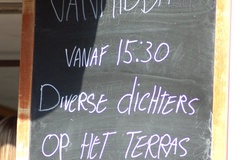 VANMIDDAG
VANAF 15.30
DIVERSE DICHTERS
OP HET TERRAS